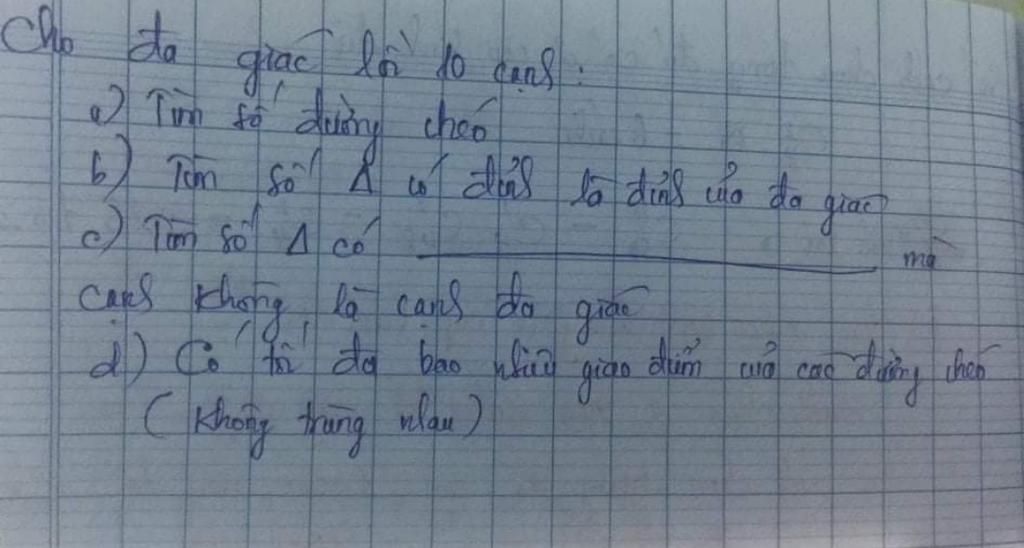 Cho đa giác lồi 10 cạnh:
a) Tìm số đường chéo
b) Tìm số Δ có đỉnh là đỉnh của đa giác
c) Tìm số Δ có ________ mà
cạnh không là cạnh đa giác
d) Có tối đa bao nhiêu giao điểm của các đường chéo
(không trùng nhau)